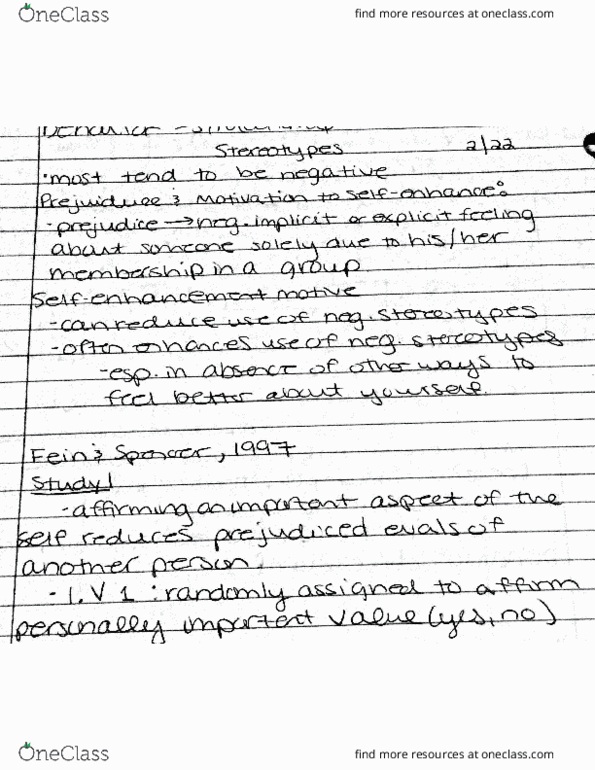 OneClass
find more resources at oneclass.com
Behavior -
Stereotypes 2/22
·most tend to be negative
Prejuiduee & Motivation to self-enhance:
-prejudice → neg. implicit or explicit feeling
about someone solely due to his/her
membership in a group
Self-enhancement motive
-can reduce use of neg. stereotypes
-often enhances use of neg. stereotypes
-esp. in absence of other ways to
feel better about yourself.
Fein & Spencer, 1997
Study 1
-affirming an important aspect of the
self reduces prejudiced evals of
another person
- I.V 1 : randomly assigned to affirm
personally important value (yes, no)
OneClass
find more resources at oneclass.com